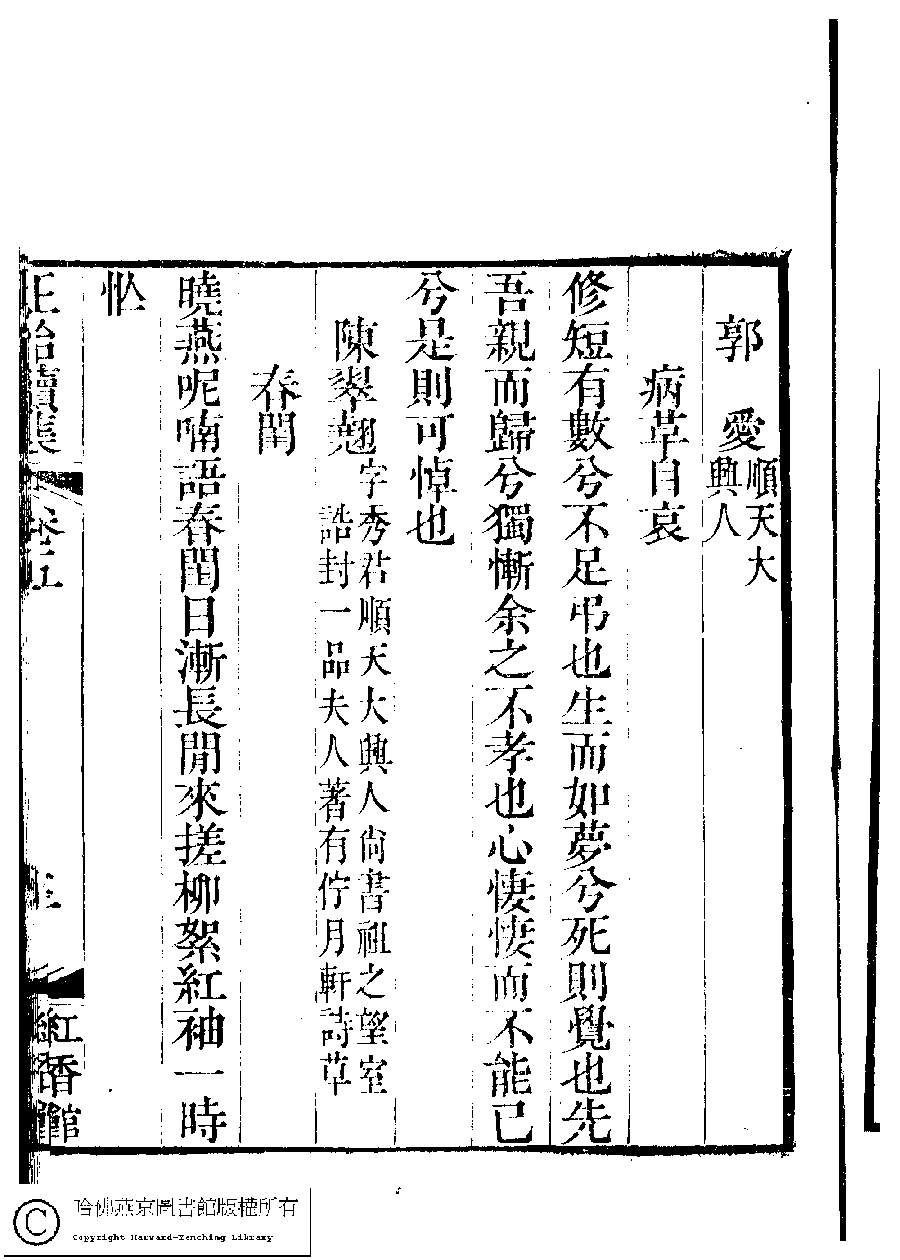 郭 愛順天大興人
病草自哀
修短有數兮不足弔也生而如夢兮死則覺也先
吾親而歸兮獨慚余之不孝也心悽悽而不能已
兮是則可悼也
陳翠翹字秀君順天大興人尚書祖之望室誥封一品夫人著有佇月軒詩草
春閨
曉燕呢喃語春閨日漸長閒來搓柳絮紅袖一時
忙
正始續集 卷 紅香館
哈佛燕京圖書館版權所有
Copyright Harvard-Yenching Library